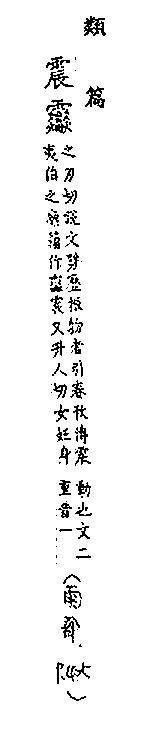 類篇
震
之刃切說文劈歷振物者引春秋傳震
夷伯之廟籀作
震又升人切女妊身
動也文二
重音一……
(雨部.
)